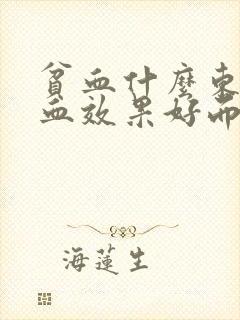 貧血什麼東
血效果好而
海蓮生